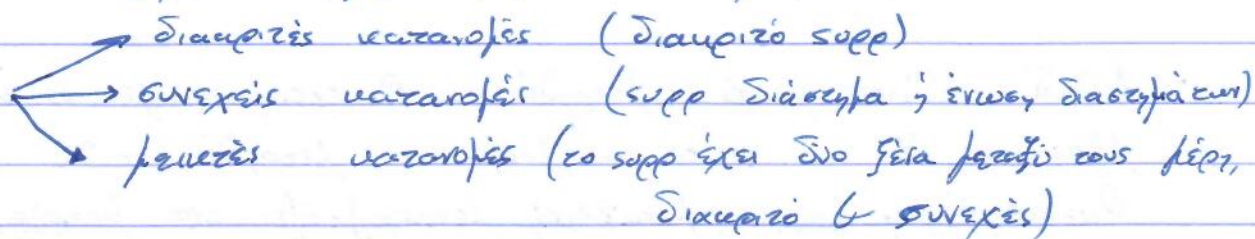 διακριτές κατανομές (διακριτό supp)
συνεχείς κατανομές (supp διάστημα ή ένωση διαστημάτων)
μεικτές κατανομές (το supp έχει δύο ξένα μεταξύ τους μέρη,
διακριτό & συνεχές)